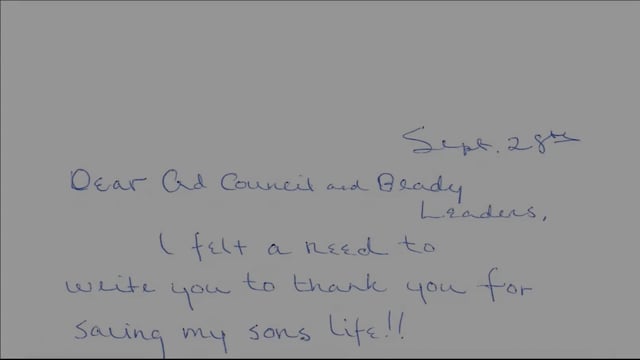 Sept. 28th
Dear Ad Council and Brady
Leaders,
I felt a need to
write you to thank you for
saving my sons life!!